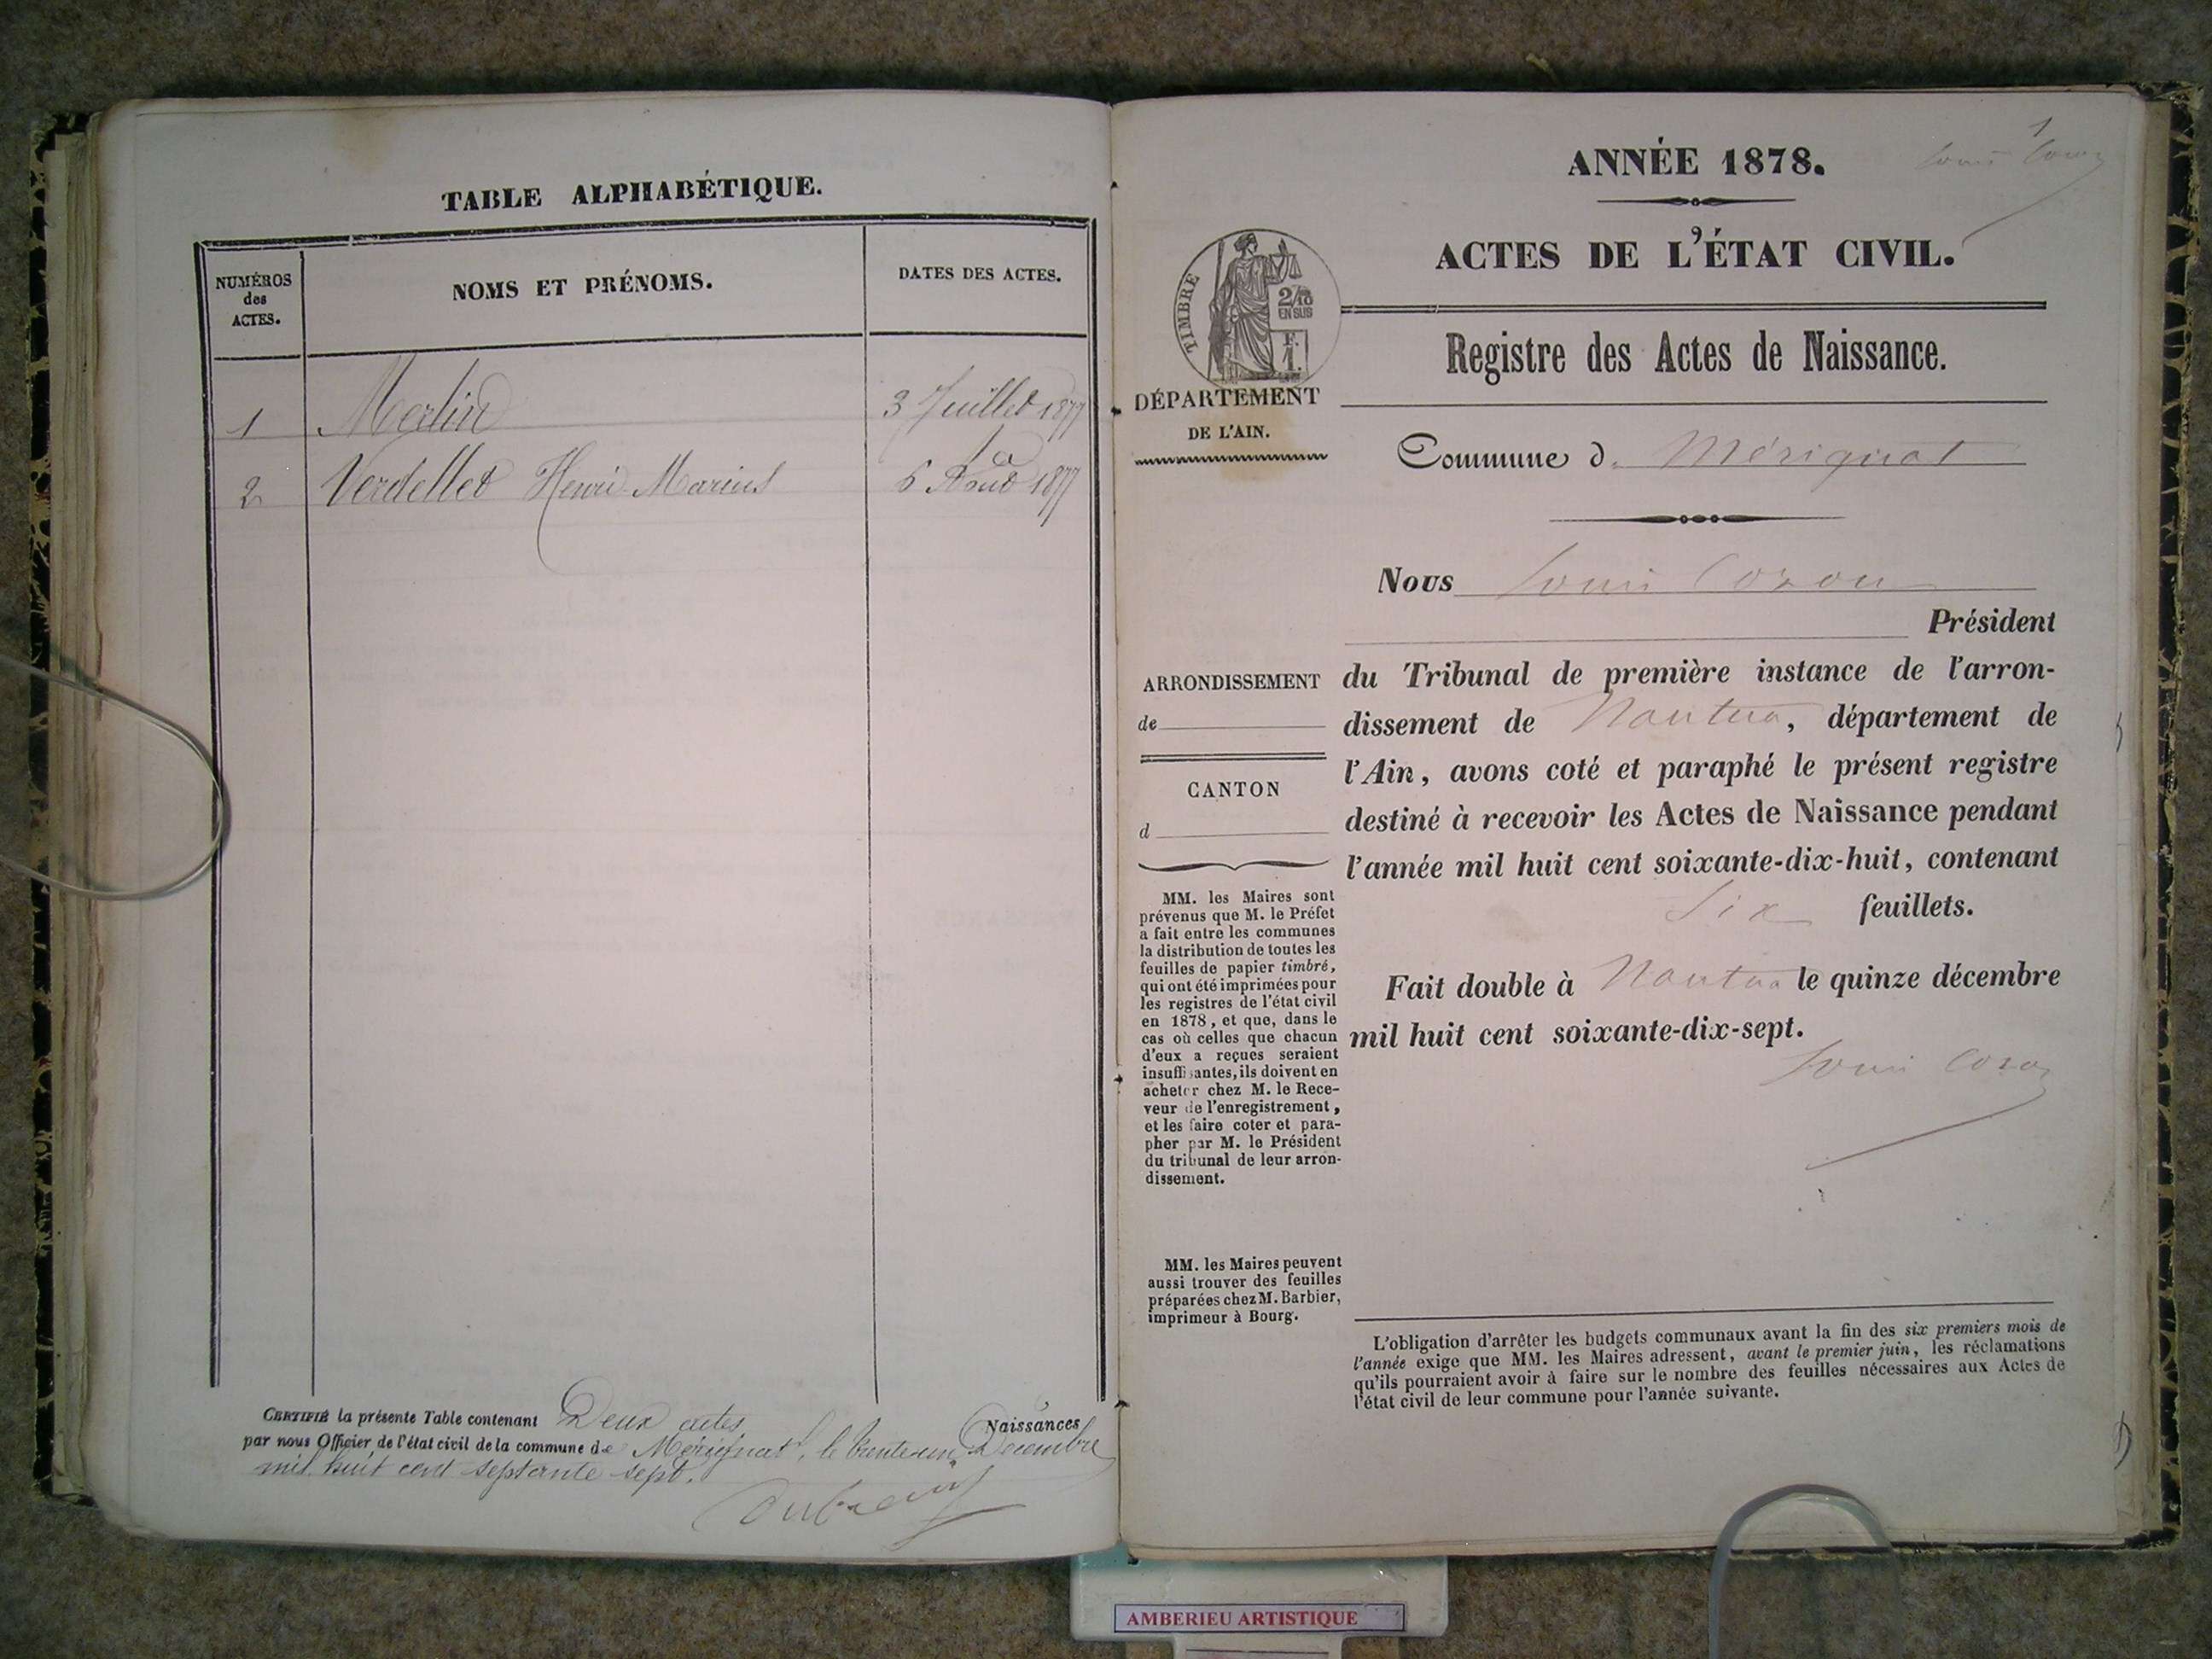 TABLE ALPHABÉTIQUE.
NUMÉROS
des
ACTES.
NOMS ET PRÉNOMS.
DATES DES ACTES.
1 Merlin 3 Juillet 1877
2 Verdellet Henri Marius 6 Aout 1877
CERTIFIÉ la présente Table contenant Deux actes Naissances
par nous Officier de l'état civil de la commune de Mérignat, le trente un Décembre
mil huit cent septante sept.
1
ANNÉE 1878.
ACTES DE L'ÉTAT CIVIL.
TIMBRE
2/10
EN SUS
F.
1.
Registre des Actes de Naissance.
DÉPARTEMENT
DE L'AIN.
Commune d. Mérignat
Nous Louis Cozon
Président
du Tribunal de première instance de l'arron-
dissement de Nantua, département de
l'Ain, avons coté et paraphé le présent registre
destiné à recevoir les Actes de Naissance pendant
l'année mil huit cent soixante-dix-huit, contenant
Six feuillets.
Fait double à Nantua le quinze décembre
mil huit cent soixante-dix-sept.
Louis Cozon
ARRONDISSEMENT
de
CANTON
d
MM. les Maires sont
prévenus que M. le Préfet
a fait entre les communes
la distribution de toutes les
feuilles de papier timbré,
qui ont été imprimées pour
les registres de l'état civil
en 1878, et que, dans le
cas où celles que chacun
d'eux a reçues seraient
insuffisantes, ils doivent en
acheter chez M. le Rece-
veur de l'enregistrement,
et les faire coter et para-
pher par M. le Président
du tribunal de leur arron-
dissement.
MM. les Maires peuvent
aussi trouver des feuilles
préparées chez M. Barbier,
imprimeur à Bourg.
L'obligation d'arrêter les budgets communaux avant la fin des six premiers mois de
l'année exige que MM. les Maires adressent, avant le premier juin, les réclamations
qu'ils pourraient avoir à faire sur le nombre des feuilles nécessaires aux Actes de
l'état civil de leur commune pour l'année suivante.
AMBERIEU ARTISTIQUE